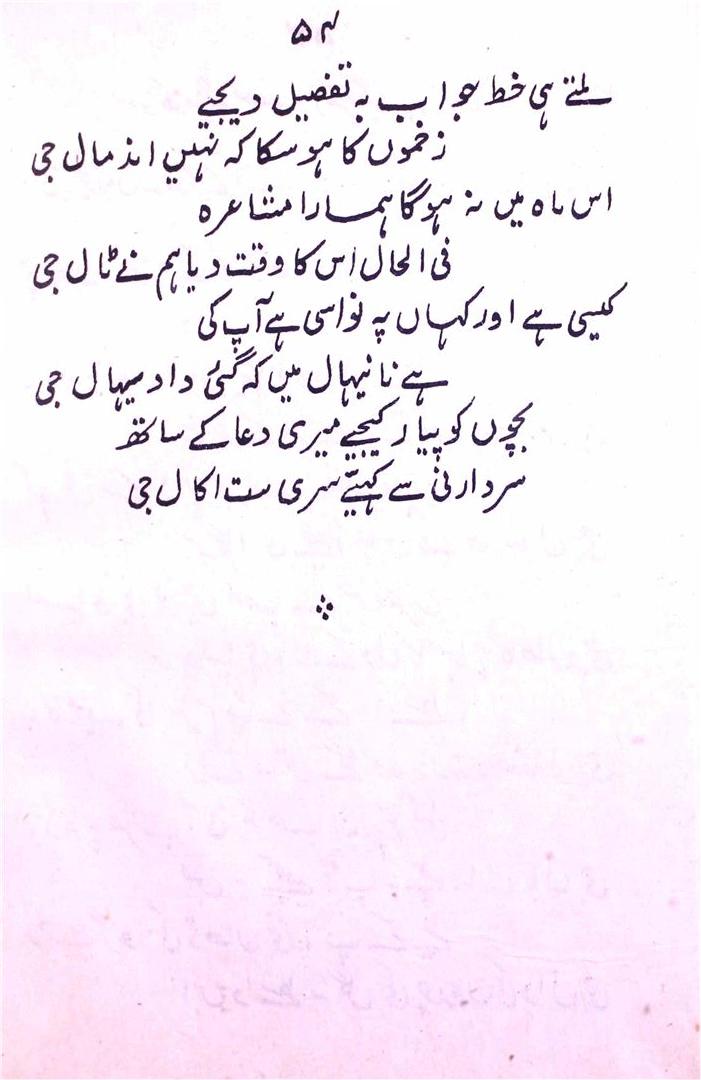 ۵۴
ملتے ہی خط جواب بہ تفصیل دیجیے
زخموں کا ہو سکا کہ نہیں اندمال جی
اس ماہ میں نہ ہوگا ہمارا مشاعرہ
فی الحال اس کا وقت دیا ہم نے ٹال جی
کیسی ہے اور کہاں پہ نواسی ہے آپ کی
ہے نانیہال میں کہ گئی دادیہال جی
بچوں کو پیار کیجیے میری دعا کے ساتھ
سردارنی سے کہیے سری ست اکال جی